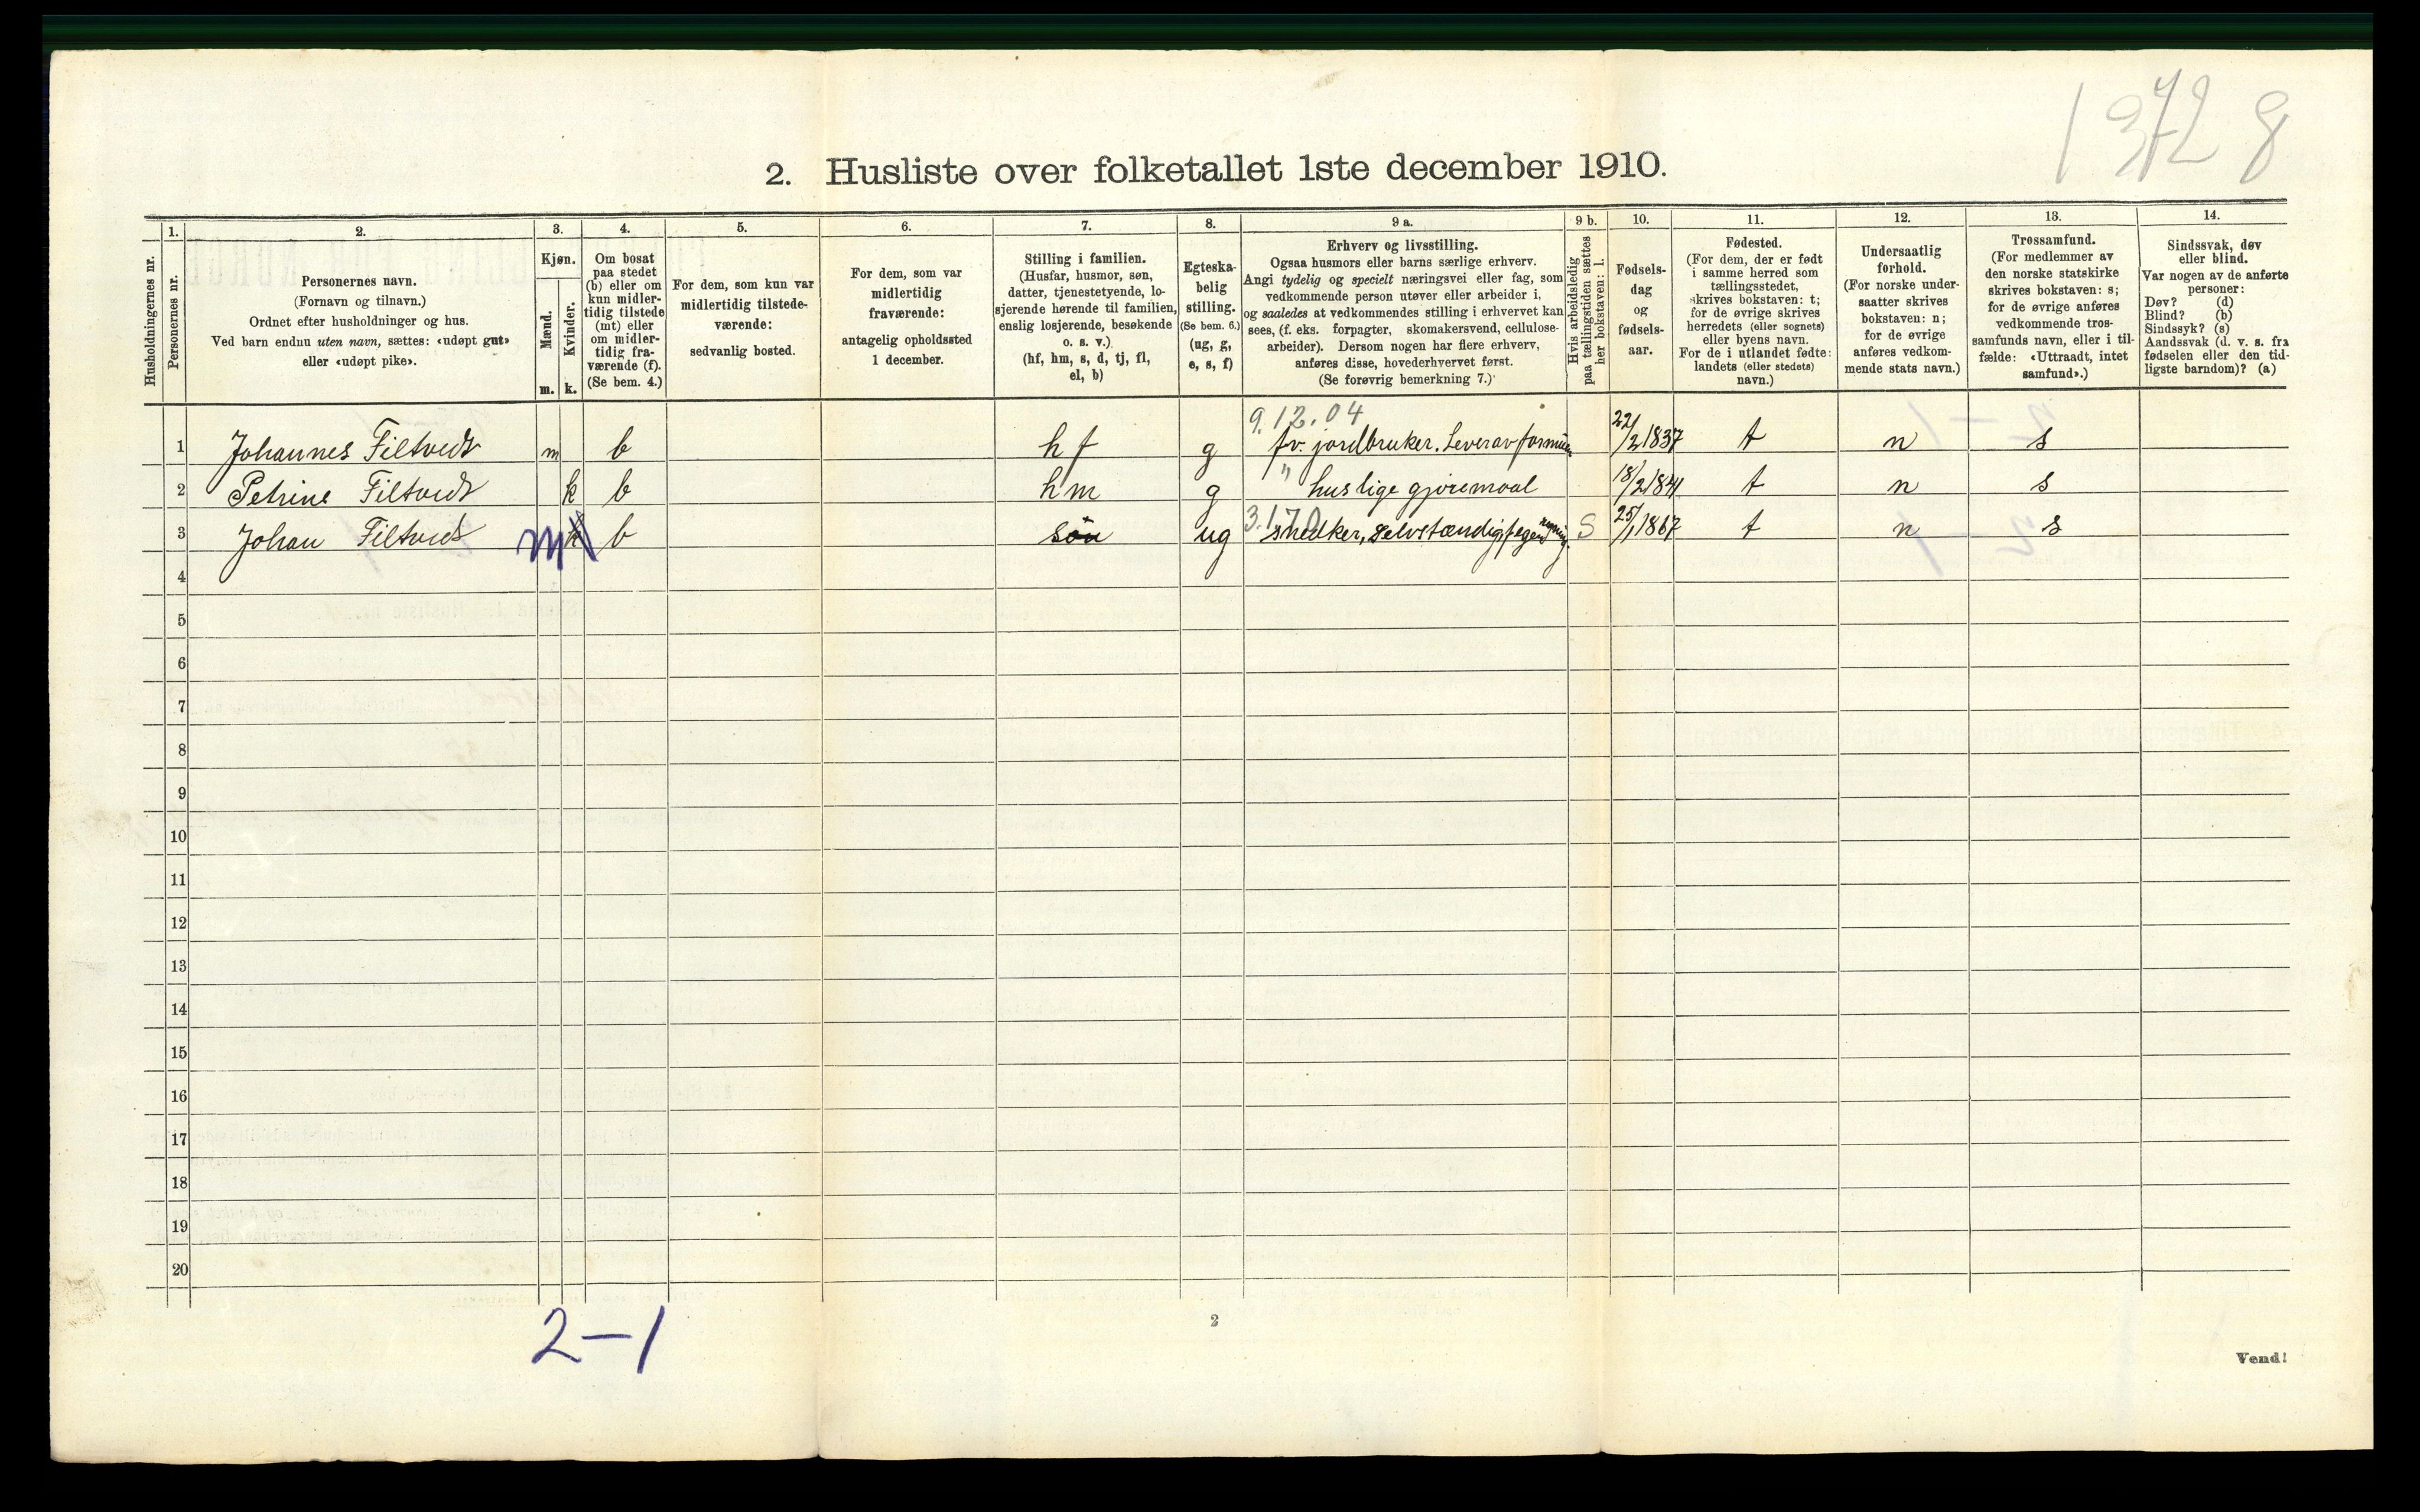 1372 8
2. Husliste over folketallet 1ste december 1910.
Husholdningernes nr.
1.
Personernes nr.
2.
Personernes navn.
(Fornavn og tilnavn.)
Ordnet efter husholdninger og hus.
Ved barn endnu uten navn, sættes: «udøpt gut»
eller «udøpt pike».
3.
Kjøn.
Mænd.
Kvinder.
m. k.
4.
Om bosat
paa stedet
(b) eller om
kun midler-
tidig tilstede
(mt) eller
om midler-
tidig fra-
værende (f).
(Se bem. 4.)
5.
For dem, som kun var
midlertidig tilstede-
værende:
sedvanlig bosted.
6.
For dem, som var
midlertidig
fraværende:
antagelig opholdssted
1 december.
7.
Stilling i familien.
(Husfar, husmor, søn,
datter, tjenestetyende, lo-
sjerende hørende til familien,
enslig losjerende, besøkende
o. s. v.)
(hf, hm, s, d, tj, fl,
el, b)
8.
Egteska-
belig
stilling.
(Se bem. 6.)
(ug, g,
e, s, f)
9 a.
Erhverv og livsstilling.
Ogsaa husmors eller barns særlige erhverv.
Angi tydelig og specielt næringsvei eller fag, som
vedkommende person utøver eller arbeider i,
og saaledes at vedkommendes stilling i erhvervet kan
sees, (f. eks. forpagter, skomakersvend, cellulose-
arbeider). Dersom nogen har flere erhverv,
anføres disse, hovederhvervet først.
(Se forøvrig bemerkning 7.)
9 b.
Hvis arbeidsledig
paa tællingstiden sættes
her bokstaven: l.
10.
Fødsels-
dag
og
fødsels-
aar.
11.
Fødested.
(For dem, der er født
i samme herred som
tællingsstedet,
skrives bokstaven: t;
for de øvrige skrives
herredets (eller sognets)
eller byens navn.
For de i utlandet fødte:
landets (eller stedets)
navn.)
12.
Undersaatlig
forhold.
(For norske under-
saatter skrives
bokstaven: n;
for de øvrige
anføres vedkom-
mende stats navn.)
13.
Trossamfund.
(For medlemmer av
den norske statskirke
skrives bokstaven: s;
for de øvrige anføres
vedkommende tros-
samfunds navn, eller i til-
fælde: «Uttraadt, intet
samfund».)
14.
Sindssvak, døv
eller blind.
Var nogen av de anførte
personer:
Døv? (d)
Blind? (b)
Sindssyk? (s)
Aandssvak (d. v. s. fra
fødselen eller den tid-
ligste barndom)? (a)
9.12.04
1 Johannes Filtvedt m b hf g fv. jordbruker. Lever av formue 22/2 1837 t n s
2 Petrine Filtvedt k b hm g " huslige gjøremaal 18/2 1841 t n s
3.170
3 Johan Filtvedt m k b søn ug snedker, selvstændig f egen regning. S 25/1 1867 t n s
4
5
6
7
8
9
10
11
12
13
14
15
16
17
18
19
20
2-1
2
Vend!